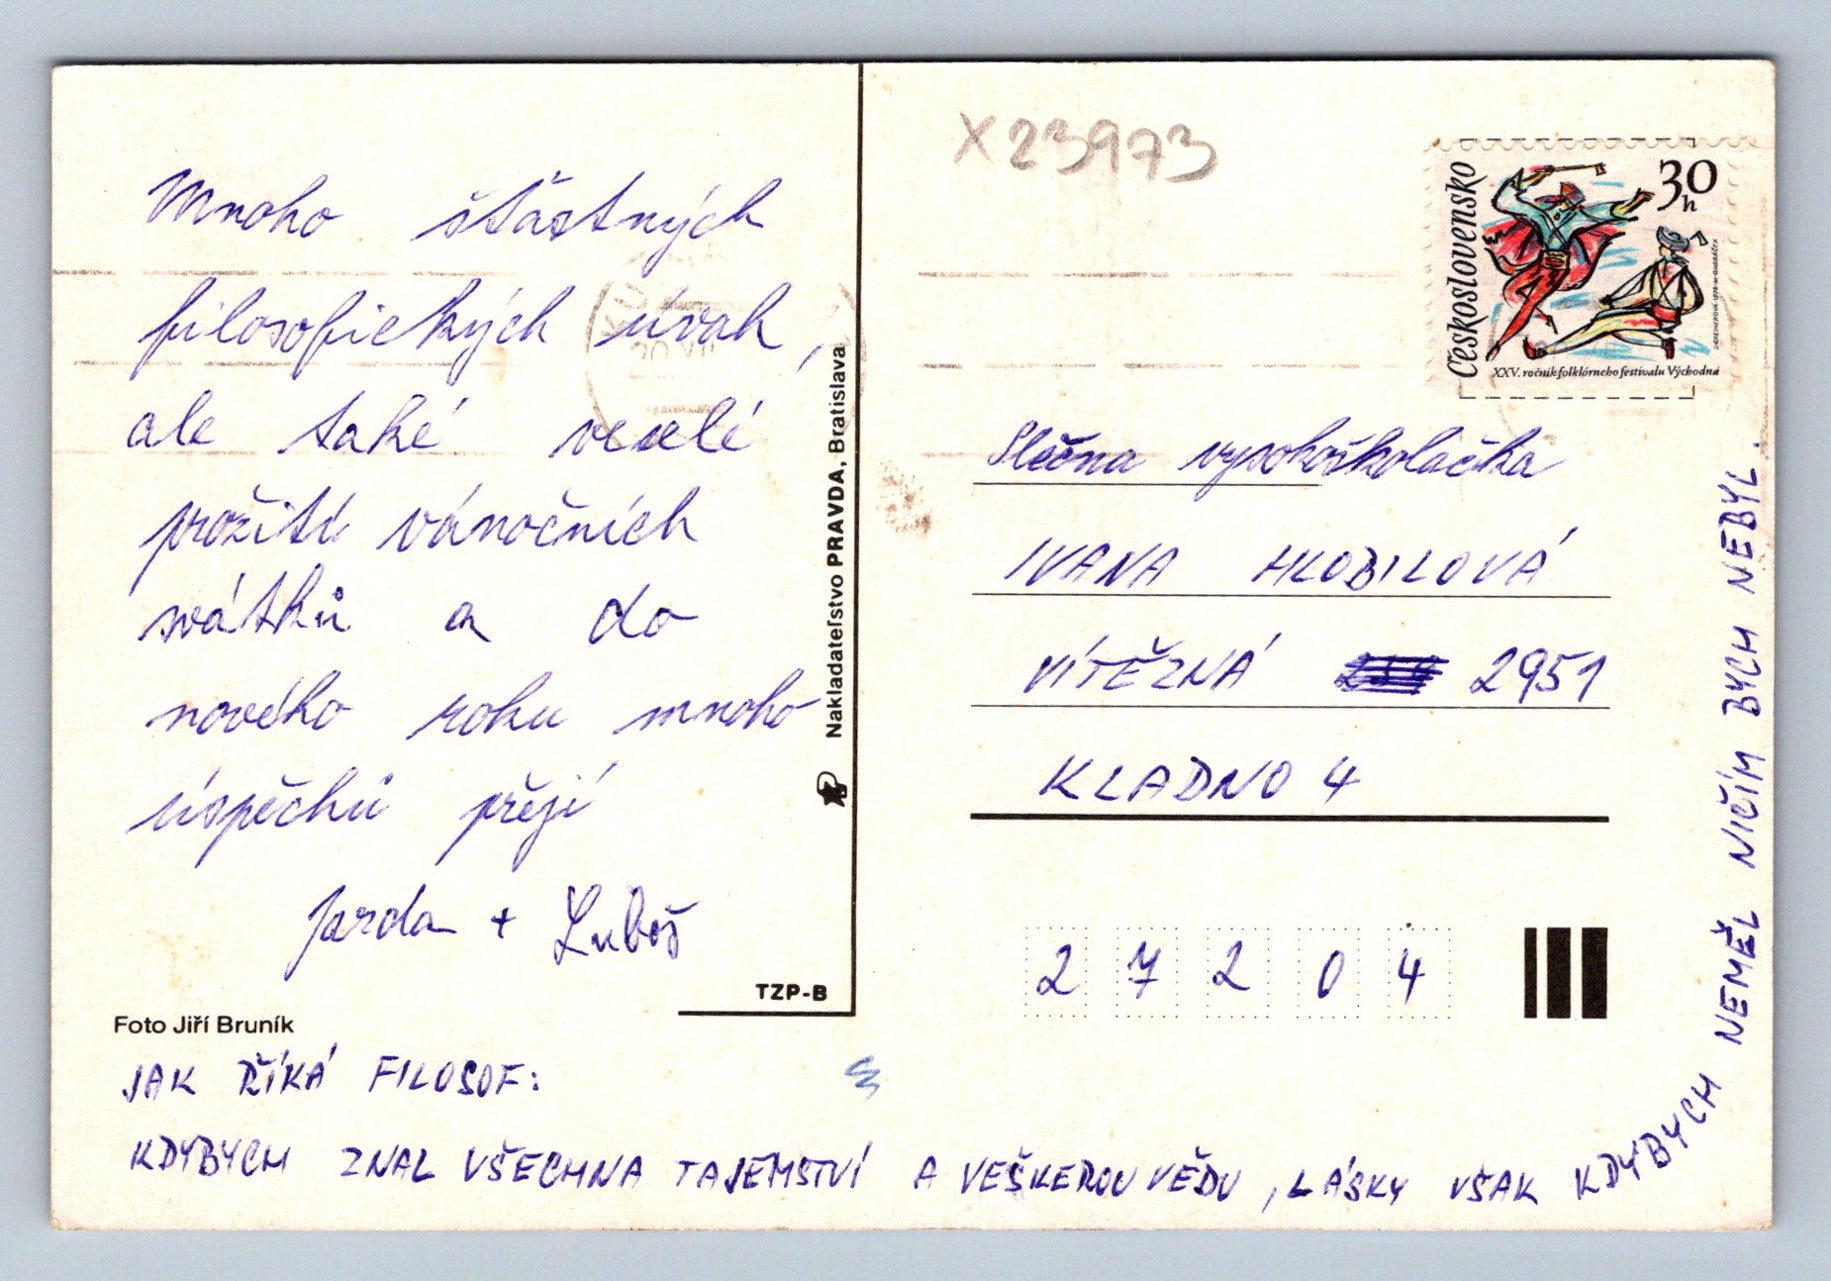 Mnoho šťastných
filosofických úvah,
ale také veselé
prožití vánočních
svátků a do
nového roku mnoho
úspěchů přejí
Jarda + Luboš
TZP-B
Foto Jiří Bruník
JAK ŘÍKÁ FILOSOF:
KDYBYCH ZNAL VŠECHNA TAJEMSTVÍ A VEŠKEROU VĚDU, LÁSKY VŠAK KDYBYCH NEMĚL NIČÍM BYCH NEBYL.
Nakladateľstvo PRAVDA, Bratislava
X23973
Československo
30
h
XXV. ročník folklórneho festivalu Východná
Slečna vysokoškolačka
IVANA HLOBILOVÁ
VÍTĚZNÁ 2951
KLADNO 4
2 7 2 0 4